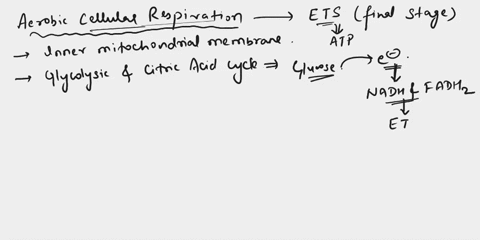 Aerobic Cellular Respiration → ETS (final stage)
ATP
→ Inner mitochondrial membrane.
→ Glycolysic & Citric Acid cycle ⇒ Glucose e⊖.
NADH & FADH₂
ET